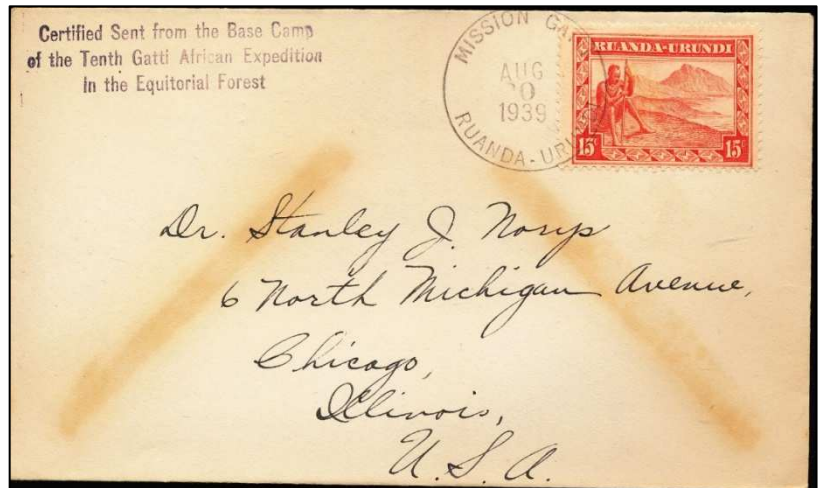 Certified Sent from the Base Camp
of the Tenth Gatti African Expedition
In the Equitorial Forest
MISSION
AUG
1939
RUANDA-
RUANDA-URUNDI
15c 15c
Dr. Stanley J. Norys
6 North Michigan Avenue,
Chicago,
Illinois,
U.S.A.